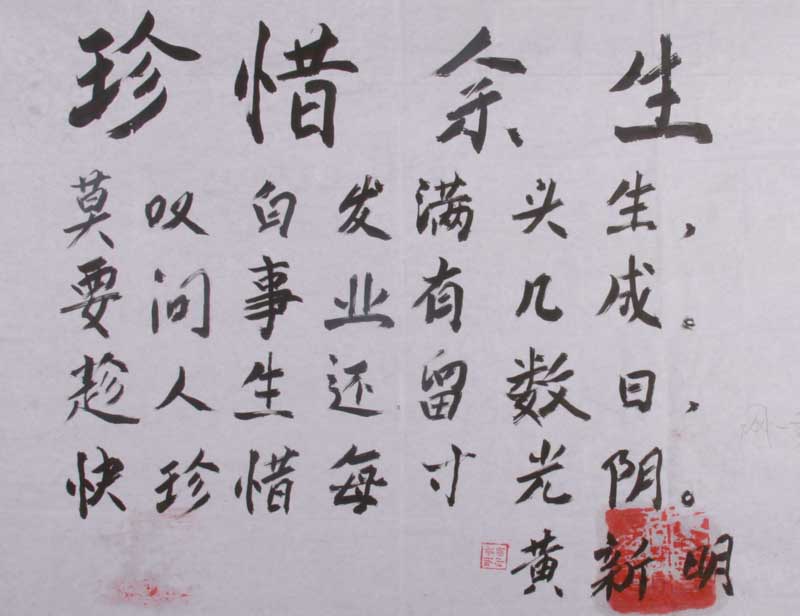 珍惜余生
莫叹白发满头生，
要问事业有几成。
趁人生还留数日，
快珍惜每寸光阴。
黄新明